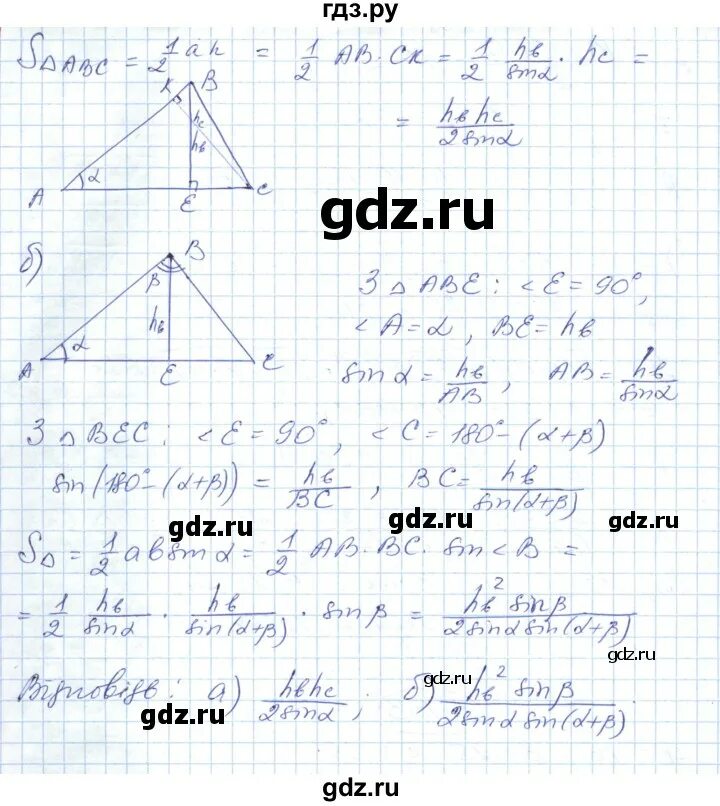 гдз.ру
S△ABC = 1/2 ah = 1/2 AB · CK = 1/2 hв/sinα · hc =
= hв hc / 2 sinα
K B
hc
hв
A α E C
gdz.ru
б)
B
β
hв
A α E C
З △ ABE: <E = 90°,
<A = α, BE = hв
sin α = hв/AB, AB = hв/sinα
З △ BEC: <E = 90°, <C = 180° - (α+β)
sin(180° - (α+β)) = hв/BC, BC = hв/sin(α+β)
gdz.ru
gdz.ru
S△ = 1/2 ab sin α = 1/2 AB · BC · sin <B =
= 1/2 hв/sinα · hв/sin(α+β) · sin β = hв² sinβ / 2 sinα sin(α+β)
gdz.ru
gdz.ru
Відповідь: а) hв hc / 2 sinα; б) hв² sinβ / 2 sinα sin(α+β).
gdz.ru
gdz.ru
gdz.ru
gdz.ru